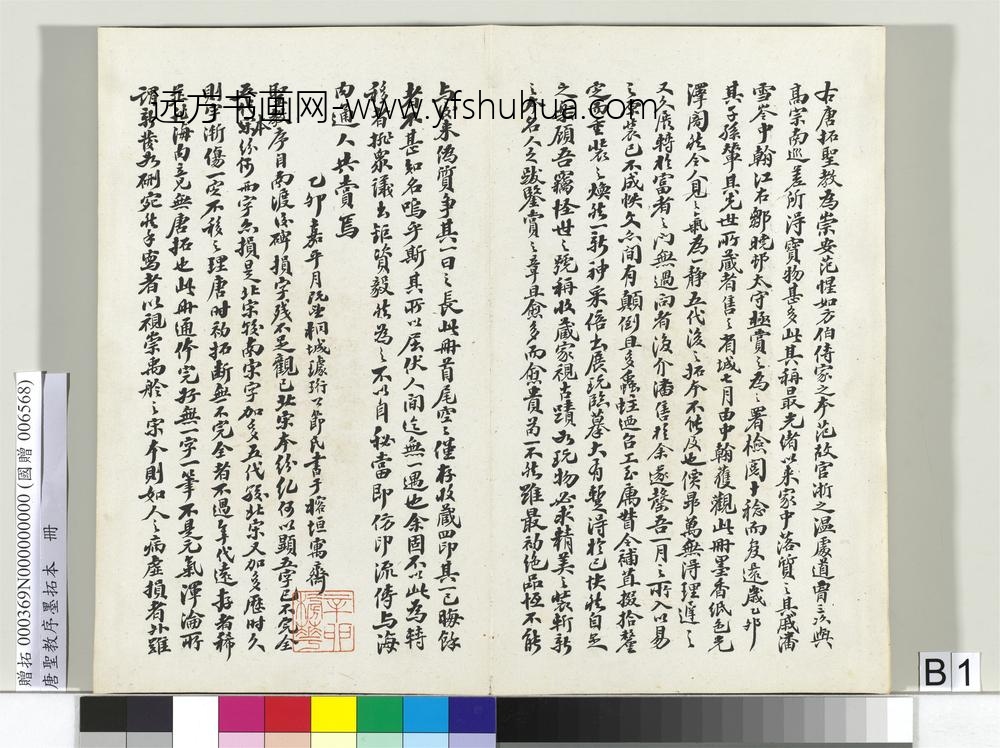 右唐拓聖教為崇安范惺如方伯傳家之本范故官浙之温處道嘗三次與
高宗南巡差所得寶物甚多此其稱最光緒以来家中落質之其戚潘
雪岑中翰江右鄒曉邨太守極賞之為之署檢閲十稔而復還歲乙卯
其子孫輦其先世所藏者售之省城七月由中翰獲觀此冊墨香紙色光
澤閣然令人見之氣為一静五代後之拓本不能及也價昂萬無得理遲之
又久展轉於富者之門無過問者復介潘售於余遂罄吾一月之所入以易
之裝已不成帙文亦間有顛倒且多蟲蛀迺召工至寓督令補直掇拾釐
定重裝之煥然一新神采倍出展玩臨摹大有蹔得於己快然自足
之 顧吾竊怪世之號稱收藏家視古蹟如玩物必求精美之裝斬新
之 名人之跋鑒賞之章且愈多而愈貴苟一不然雖最初絶品恆不能
与 来偽質争其一日之長此冊首尾空空僅存收藏四印其一已晦餘
者 甚知名嗚乎斯其所以屈伏人間迄無一遇也余固不以此為轉
移者排衆議出鉅資毅然為之不以自秘當即仿印流傳与海
内通人共賞焉
乙卯嘉平月既望桐城璩珩公節氏書于榕垣寓齋
聖教序自南渡後碑損字殘不足觀已北宋本紛糺何以顯五字已不完全
 本 紛何兩字亦損是北宋較南宋字加多五代較北宋又加多歷時久
則 漸傷一定不移之理唐時初拓断無不完全者不過年代遠存者稀
 海内竟無唐拓也此冊通体完好無一字一筆不是元氣渾淪所
謂新發於硎宛然手寫者以視崇禹舲之宋本則如人之病虚損者外雖
远方书画网-www.yfshuhua.com
贈拓 000369N000000000 (國贈 006568)
唐聖教序墨拓本 冊
B 1